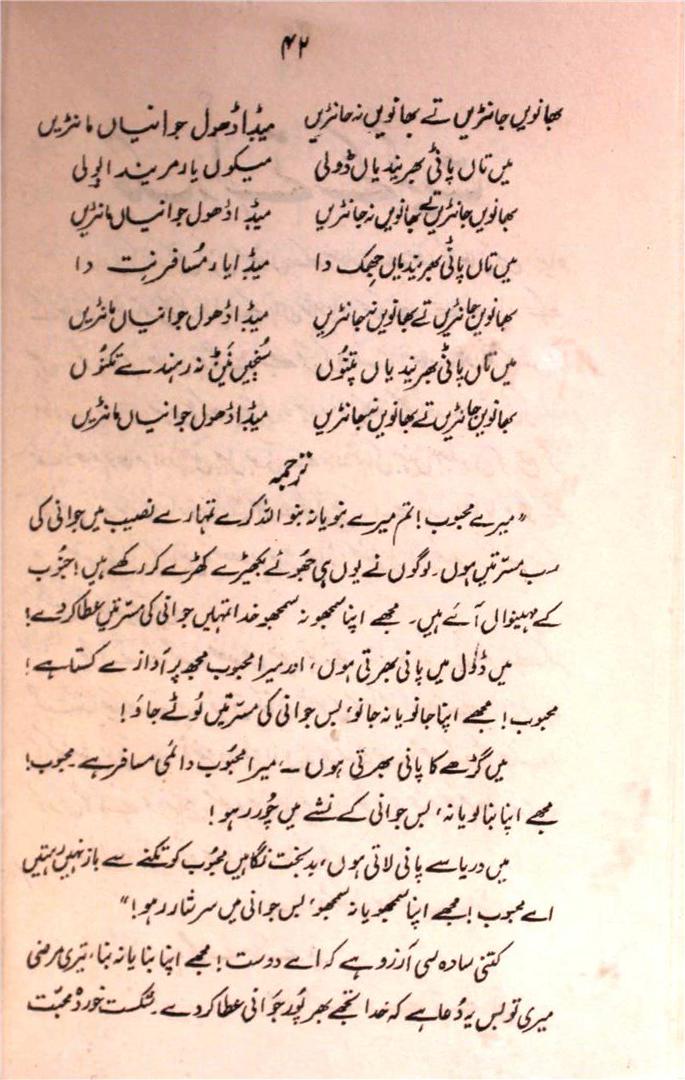 ۴۲
بھانویں جانڑیں تے بھانویں نہ جانڑیں میڈا ڈھول جوانیاں مانڑیں
میں تاں پانی بھریندیاں ڈولی میکوں یار مریندا بولی
بھانویں جانڑیں تے بھانویں نہ جانڑیں میڈا ڈھول جوانیاں مانڑیں
میں تاں پانی بھریندیاں چھک دا میڈا یار مسافر نت دا
بھانویں جانڑیں تے بھانویں نہ جانڑیں میڈا ڈھول جوانیاں مانڑیں
میں تاں پانی بھریندیاں پتنوں سنجیں نین نہ رہندے تکنوں
بھانویں جانڑیں تے بھانویں نہ جانڑیں میڈا ڈھول جوانیاں مانڑیں
ترجمہ
"میرے محبوب! تم میرے بنو یا نہ بنو اللہ کرے تمہارے نصیب میں جوانی کی
سب مسرتیں ہوں۔ لوگوں نے یوں ہی جھوٹے بکھیڑے کھڑے کر رکھے ہیں!
کے مہینوال آئے ہیں۔ مجھے اپنا سمجھو نہ سمجھو خدا تمہیں جوانی کی مسرتیں عطا کر دے!
میں ڈول میں پانی بھرتی ہوں، اور میرا محبوب مجھ پر آوازے کستا ہے!
محبوب! مجھے اپنا جانو یا نہ جانو، بس جوانی کی مسرتیں لوٹے جاؤ!
میں گڑھے کا پانی بھرتی ہوں ــ، میرا محبوب دائمی مسافر ہے۔ محبوب!
مجھے اپنا بنا لو یا نہ، بس جوانی کے نشے میں چور رہو!
میں دریا سے پانی لاتی ہوں، بدبخت نگاہیں محبوب کو تکنے سے باز نہیں رہتیں
اے محبوب! مجھے اپنا سمجھو یا نہ سمجھو، بس جوانی میں سرشار رہو!"
کتنی سادہ سی آرزو ہے کہ اے دوست! مجھے اپنا بنا یا نہ بنا، تیری مرضی
میری تو بس یہ دعا ہے کہ خدا تجھے بھرپور جوانی عطا کر دے۔ شکست خوردہ محبت